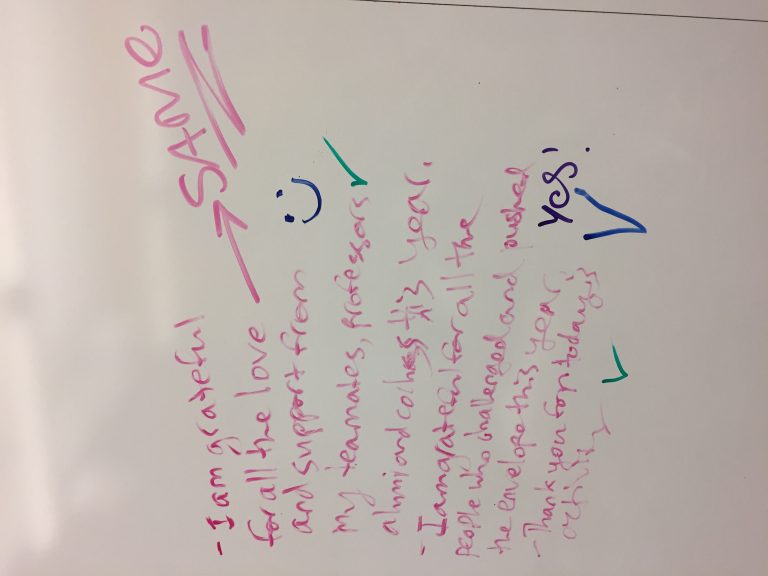 - I am grateful
for all the love → SAME
and support from :)
my teamates, professors ✓
almni and coches this year.
- I am grateful for all the
people who challenged and pushed
the envelope this year. yes!
- Thank you for today's
activity